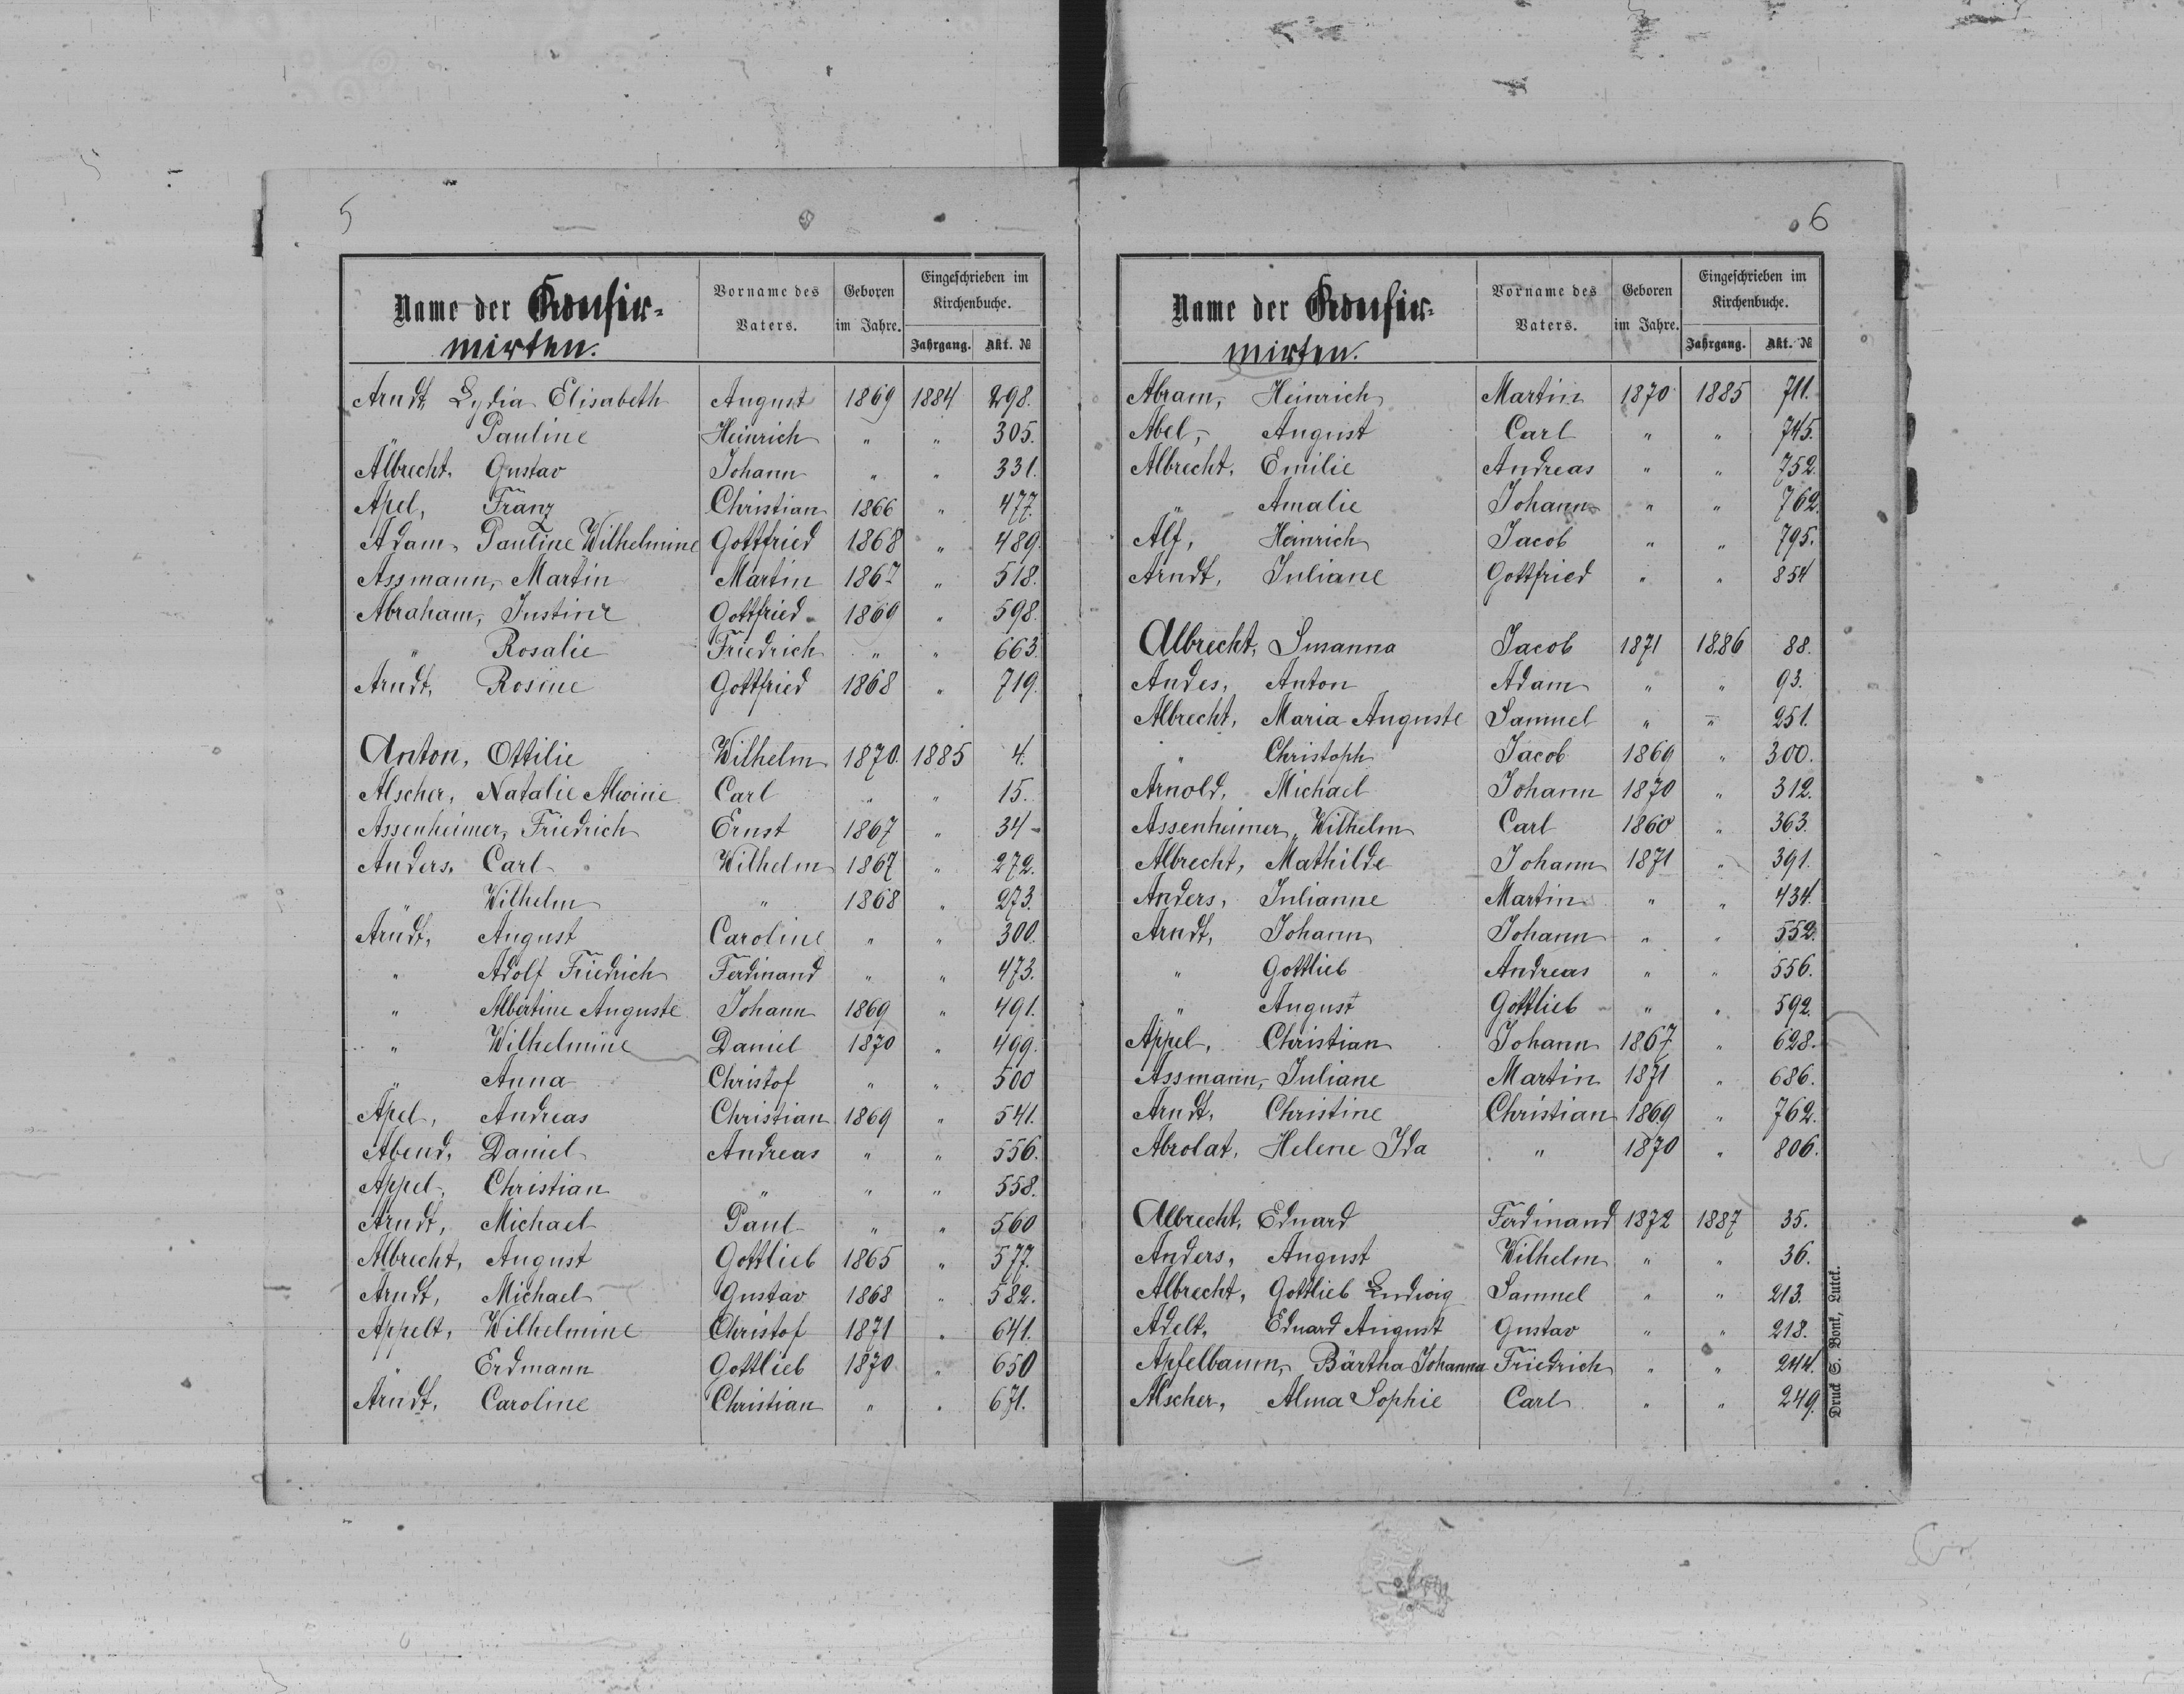 5
Name der Konfir-
mirten.
Vorname des
Vaters.
Geboren
im Jahre.
Eingeschrieben im
Kirchenbuche.
Jahrgang. Akt. №
Arndt, Lydia Elisabeth August 1869 1884 298.
„ Pauline Heinrich „ „ 305.
Albrecht, Gustav Johann „ „ 331.
Apel, Franz Christian 1866 „ 477.
Adam, Pauline Wilhelmine Gottfried 1868 „ 489.
Assmann, Martin Martin 1867 „ 518.
Abraham, Justine Gottfried 1869 „ 598.
„ Rosalie Friedrich „ „ 663.
Arndt, Rosine Gottfried 1868 „ 719.
Anton, Ottilie Wilhelm 1870. 1885 4.
Alscher, Natalie Alwine Carl „ „ 15.
Assenheimer, Friedrich Ernst 1867 „ 34
Anders, Carl Wilhelm 1867 „ 272.
„ Wilhelm „ 1868 „ 273.
Arndt, August Caroline „ „ 300.
„ Adolf Friedrich Ferdinand „ „ 473.
„ Albertine Auguste Johann 1869 „ 491.
„ Wilhelmine Daniel 1870 „ 499.
„ Anna Christof „ „ 500
Apel, Andreas Christian 1869 „ 541.
Abend, Daniel Andreas „ „ 556.
Appel, Christian „ „ „ 558.
Arndt, Michael Paul „ „ 560
Albrecht, August Gottlieb 1865 „ 577.
Arndt, Michael Gustav 1868 „ 582.
Appelt, Wilhelmine Christof 1871 „ 641.
„ Erdmann Gottlieb 1870 „ 650
Arndt, Caroline Christian „ „ 671.
6
Name der Konfir-
mirten.
Vorname des
Vaters.
Geboren
im Jahre.
Eingeschrieben im
Kirchenbuche.
Jahrgang. Akt. №
Abram, Heinrich Martin 1870 1885 711.
Abel, August Carl „ „ 745.
Albrecht, Emilie Andreas „ „ 752.
„ Amalie Johann „ „ 762.
Alf, Heinrich Jacob „ „ 795.
Arndt, Juliane Gottfried „ „ 854
Albrecht, Susanna Jacob 1871 1886 88.
Andes, Anton Adam „ „ 93.
Albrecht, Maria Auguste Samuel „ „ 251.
„ Christoph Jacob 1869 „ 300.
Arnold, Michael Johann 1870 „ 312.
Assenheimer, Wilhelm Carl 1860 „ 363.
Albrecht, Mathilde Johann 1871 „ 391.
Anders, Julianne Martin „ „ 434.
Arndt, Johann Johann „ „ 552.
„ Gottlieb Andreas „ „ 556.
„ August Gottlieb „ „ 592.
Appel, Christian Johann 1867 „ 628.
Assmann, Juliane Martin 1871 „ 686.
Arndt, Christine Christian 1869 „ 762.
Abrolat, Helene Ida „ 1870 „ 806.
Albrecht, Eduard Ferdinand 1872 1887 35.
Anders, August Wilhelm „ „ 36.
Albrecht, Gottlieb Ludwig Samuel „ „ 213.
Adelt, Eduard August Gustav „ „ 218.
Apfelbaum, Bärtha Johanna Friedrich „ „ 244.
Alscher, Alma Sophie Carl „ „ 249.
Druck S. Bonk, Lutzk.